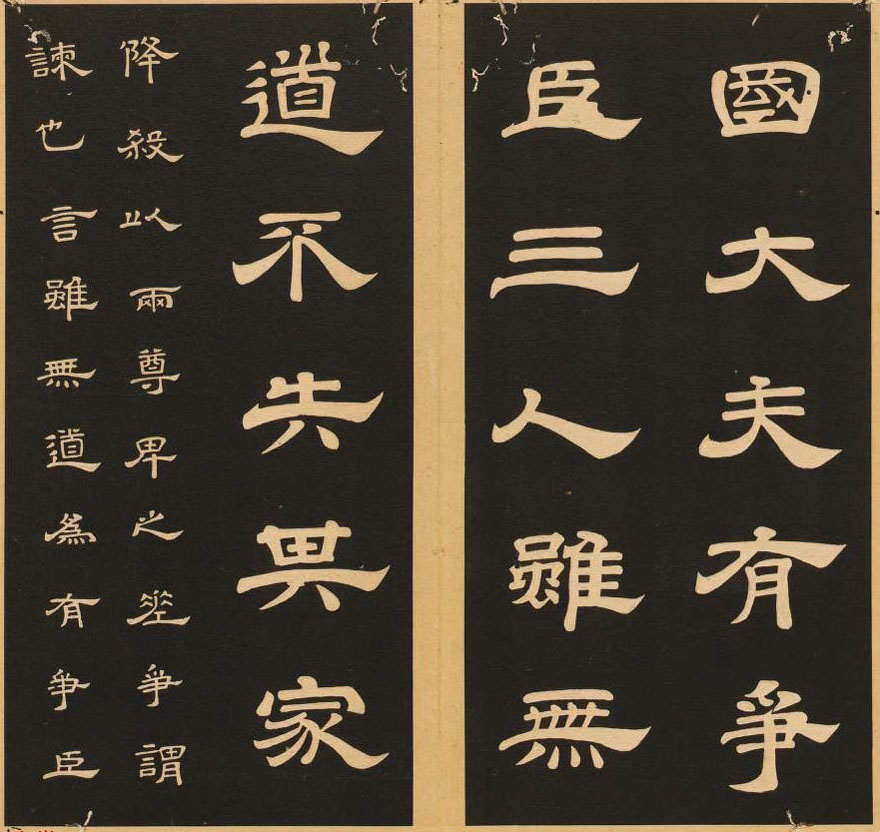 國大夫有爭
臣三人雖無
道不失其家
降殺以兩尊卑之差爭謂
諫也言雖無道為有爭臣